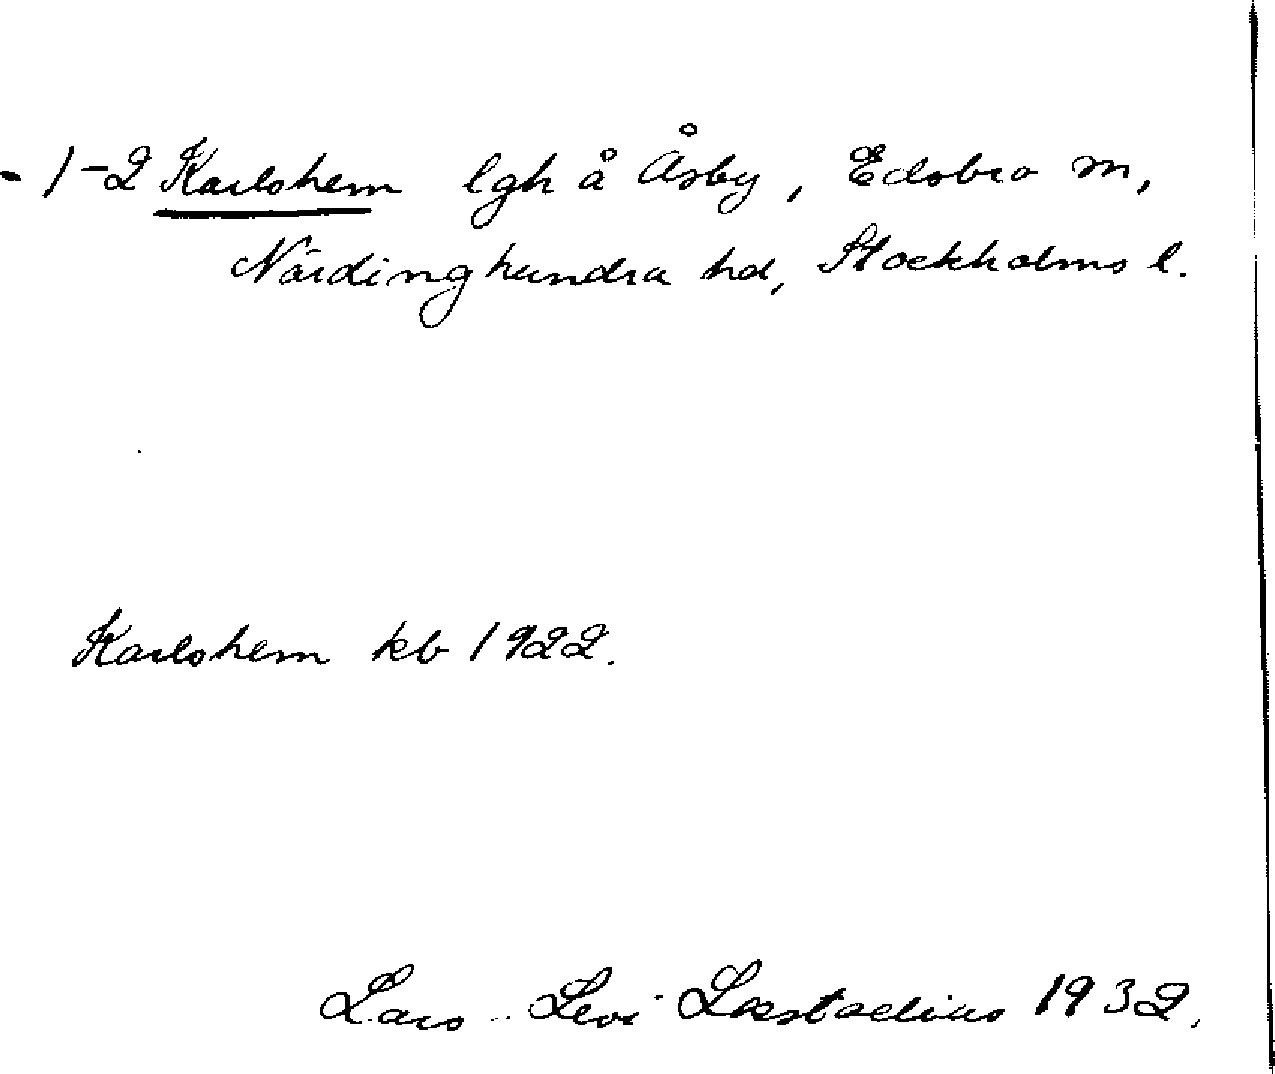 - 1-2 Karlshem lgh å Åsby, Edsbro sn,
Närdinghundra hd, Stockholms l.
Karlshem kb 1922.
Lars Levi Læstadius 1932.